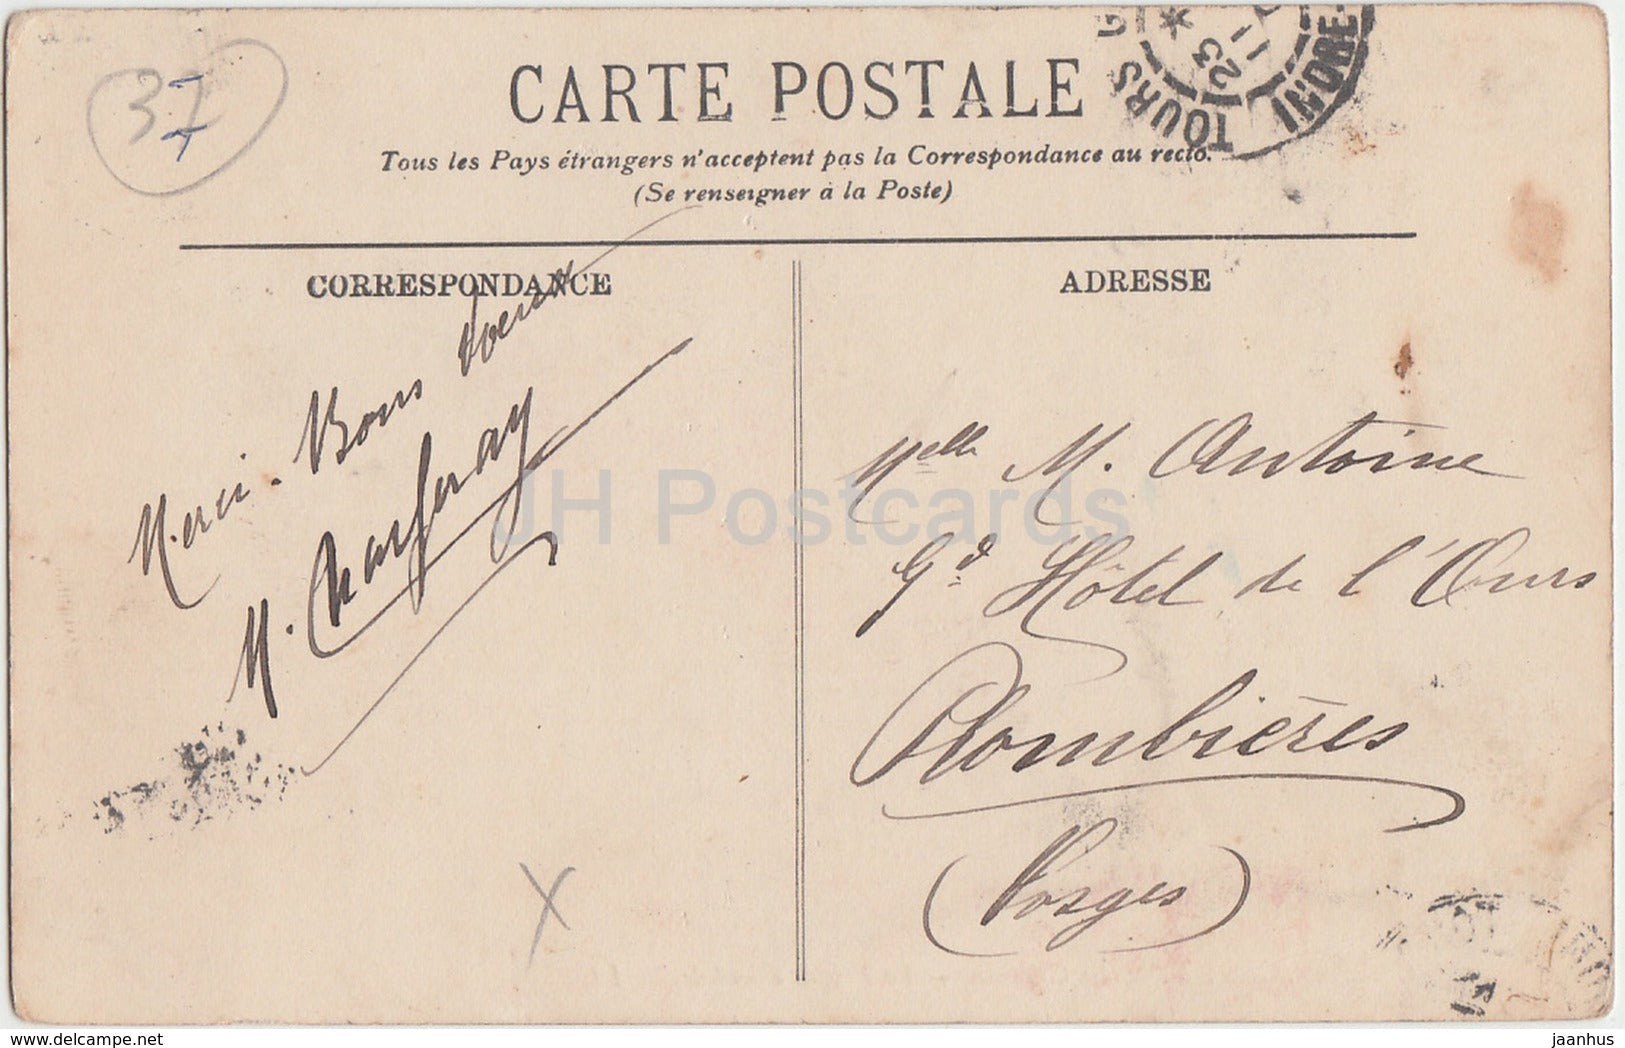 37
CARTE POSTALE
TOURS G
INDRE-
23
11
Tous les Pays étrangers n'acceptent pas la Correspondance au recto.
(Se renseigner à la Poste)
CORRESPONDANCE
Merci. Bons Voeux
M.
ADRESSE
Melle M. Antoine
Gd. Hôtel de l'Ours
Plombières
(Vosges)
X
JH Postcards
jaanhus